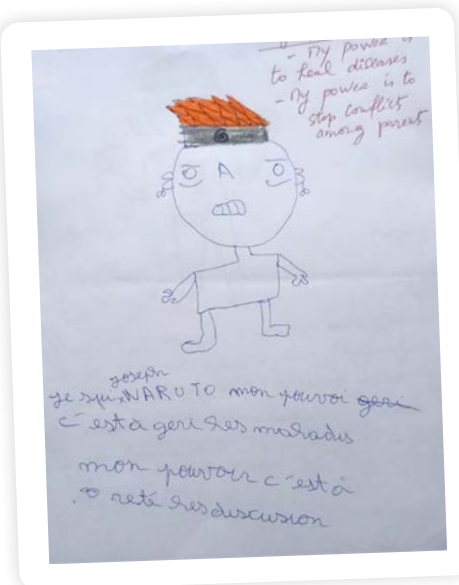 - My power is
to heal diseases
- My power is to
stop conflict
among parent
joseph
je sui NARUTO mon pouvoi geri
c'est à geri les maladis
mon pouvoir c'est à
reté les discusion